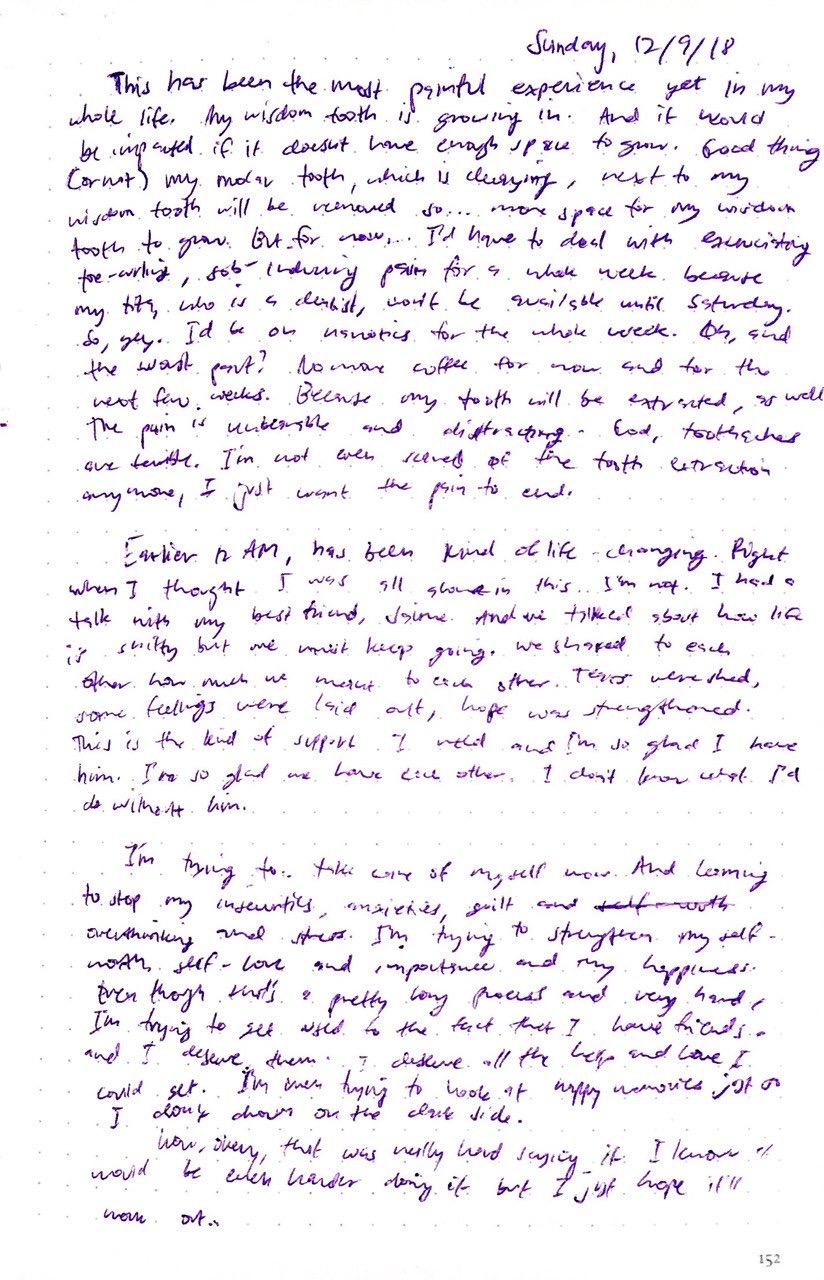 Sunday, 12/9/18
This has been the most painful experience yet in my
whole life. My wisdom tooth is growing in. And it would
be impacted if it doesn't have enough space to grow. Good thing
(or not) my molar tooth, which is decaying, next to my
wisdom tooth will be removed so... more space for my wisdom
tooth to grow. But for now... I'd have to deal with excruciating
toe-curling, sob-inducing pain for a whole week because
my tita, who is a dentist, won't be available until Saturday.
So, yay. I'd be on narcotics for the whole week. Oh, and
the worst part? No more coffee for now and for the
next few weeks. Because my tooth will be extracted, as well
The pain is unbearable and distracting. God, toothaches
are terrible. I'm not even scared of the tooth extraction
anymore, I just want the pain to end.
Earlier 12 AM, has been kind of life-changing. Right
when I thought I was all alone in this... I'm not. I had a
talk with my best friend, Jaime. And we talked about how life
is shitty but we must keep going. We shared to each
other how much we meant to each other. Tears were shed,
some feelings were laid out, hope was strengthened.
This is the kind of support I need and I'm so glad I have
him. I'm so glad we have each other. I don't know what I'd
do without him.
I'm trying to.. take care of myself now. And learning
to stop my insecurities, anxieties, guilt and self-worth
overthinking and stress. I'm trying to strengthen my self-
worth, self-love and importance and my happiness.
Even though that's a pretty long process and very hard,
I'm trying to get used to the fact that I have friends
and I deserve them. I deserve all the help and love I
could get. I'm even trying to look at happy memories just so
I don't drown on the dark side.
Wow, that was really hard saying it. I know it
would be even harder doing it but I just hope it'll
work out..
152